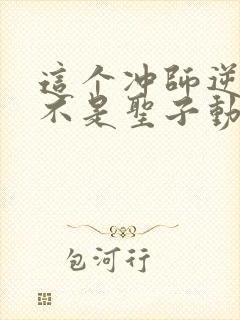 這个冲師逆
不是聖子動
包河行